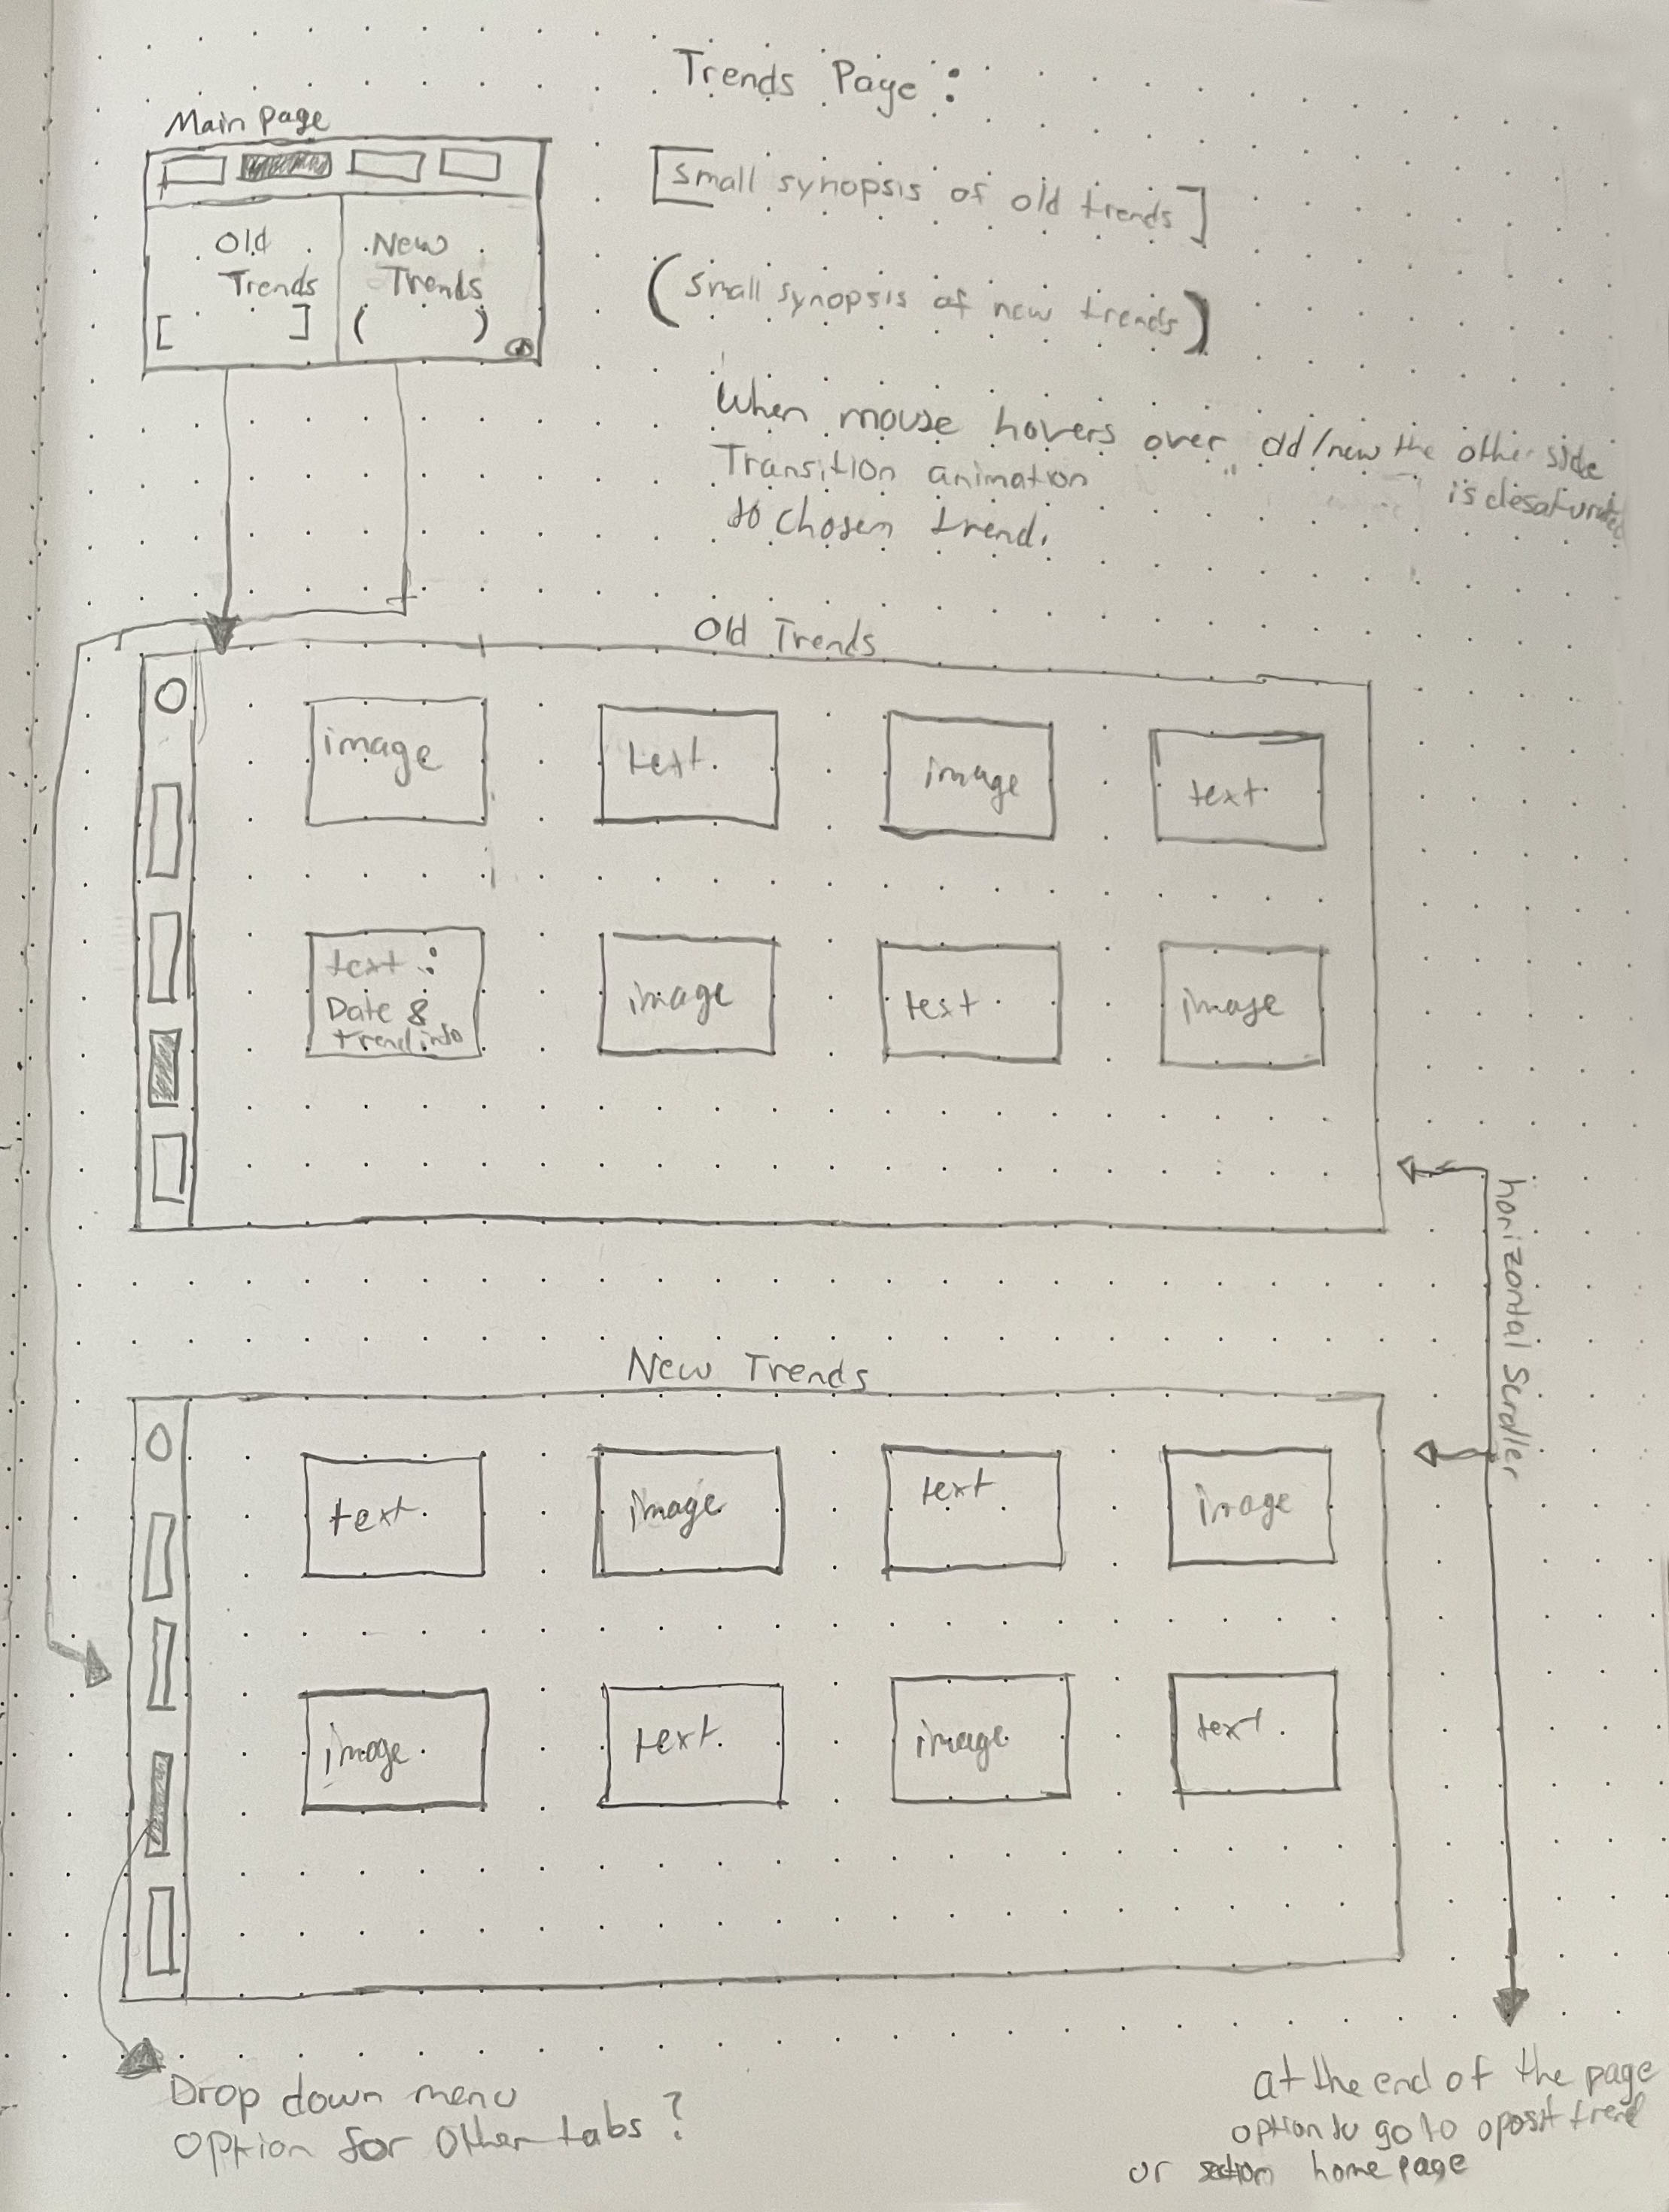 Trends Page :
Main page
Old
Trends
[ ]
New
Trends
( )
[small synopsis of old trends]
(small synopsis of new trends)
When mouse hovers over old/new the other side
is desaturated
Transition animation
to chosen trend.
Old Trends
image
text.
image
text.
text :
Date &
trend info
image
text.
image
horizontal Scroller
New Trends
text.
image
text.
image
image.
text.
image.
text.
Drop down menu
option for other tabs?
at the end of the page
option to go to oposit trend
or section home page